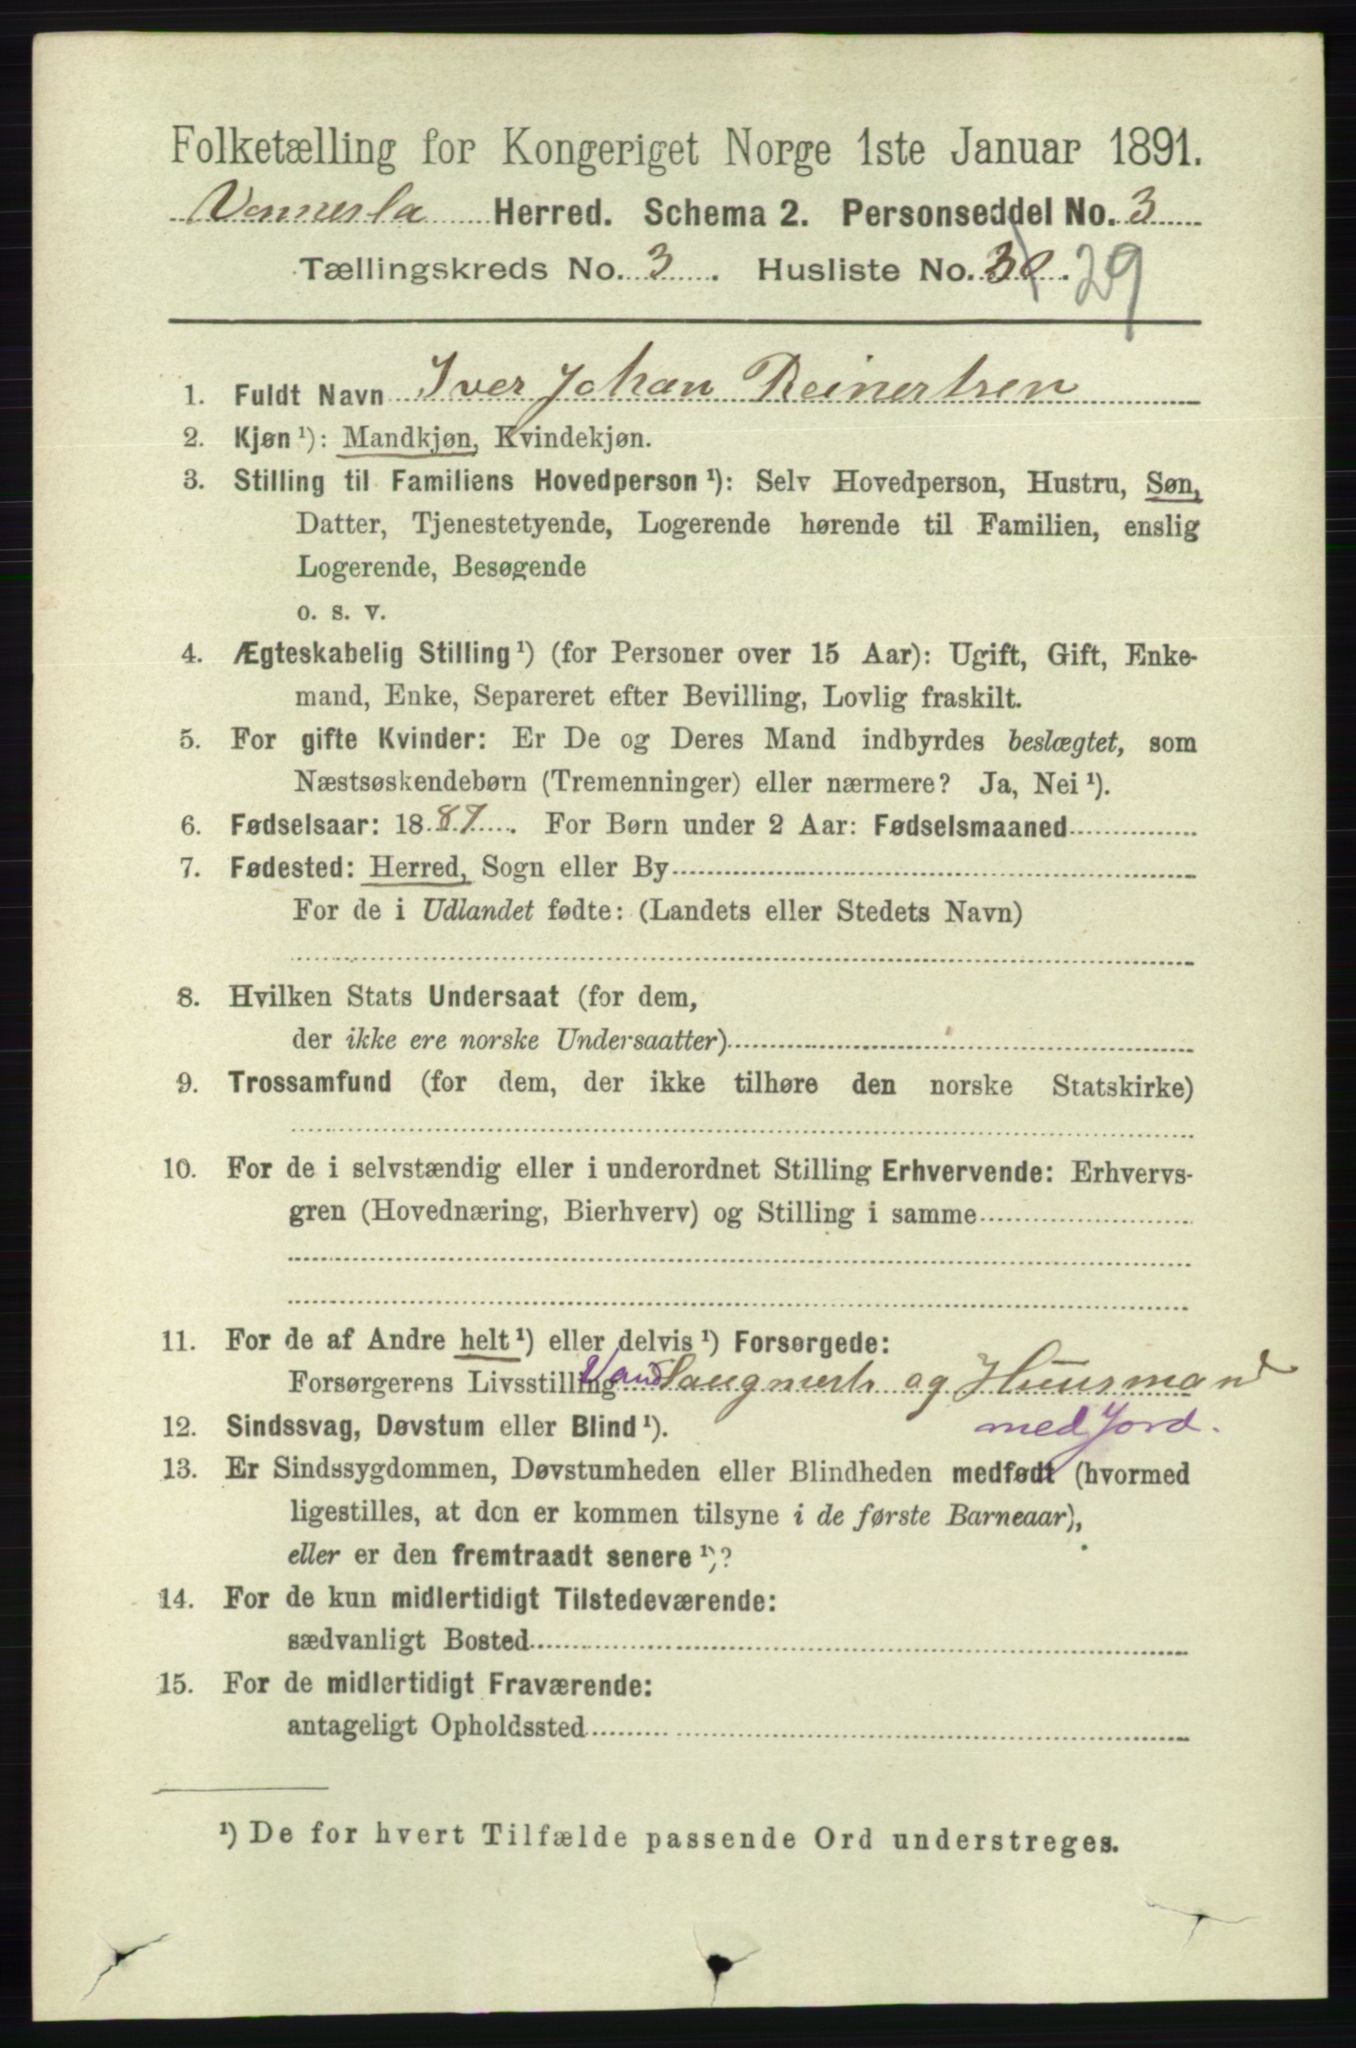 Folketælling for Kongeriget Norge 1ste Januar 1891.
Vennesla Herred. Schema 2. Personseddel No. 3
Tællingskreds No. 3. Husliste No. 30. 29
1. Fuldt Navn Iver Johan Reinertsen
2. Kjøn¹): Mandkjøn, Kvindekjøn.
3. Stilling til Familiens Hovedperson¹): Selv Hovedperson, Hustru, Søn,
Datter, Tjenestetyende, Logerende hørende til Familien, enslig
Logerende, Besøgende
o. s. v.
4. Ægteskabelig Stilling¹) (for Personer over 15 Aar): Ugift, Gift, Enke-
mand, Enke, Separeret efter Bevilling, Lovlig fraskilt.
5. For gifte Kvinder: Er De og Deres Mand indbyrdes beslægtet, som
Næstsøskendebørn (Tremenninger) eller nærmere? Ja, Nei¹).
6. Fødselsaar: 1887. For Børn under 2 Aar: Fødselsmaaned
7. Fødested: Herred, Sogn eller By
For de i Udlandet fødte: (Landets eller Stedets Navn)
8. Hvilken Stats Undersaat (for dem,
der ikke ere norske Undersaatter)
9. Trossamfund (for dem, der ikke tilhøre den norske Statskirke)
10. For de i selvstændig eller i underordnet Stilling Erhvervende: Erhvervs-
gren (Hovednæring, Bierhverv) og Stilling i samme
11. For de af Andre helt¹) eller delvis¹) Forsørgede:
Forsørgerens Livsstilling Vand Saugmest. og Huusmand
12. Sindssvag, Døvstum eller Blind¹). med Jord.
13. Er Sindssygdommen, Døvstumheden eller Blindheden medfødt (hvormed
ligestilles, at den er kommen tilsyne i de første Barneaar),
eller er den fremtraadt senere¹)?
14. For de kun midlertidigt Tilstedeværende:
sædvanligt Bosted
15. For de midlertidigt Fraværende:
antageligt Opholdssted
¹) De for hvert Tilfælde passende Ord understreges.